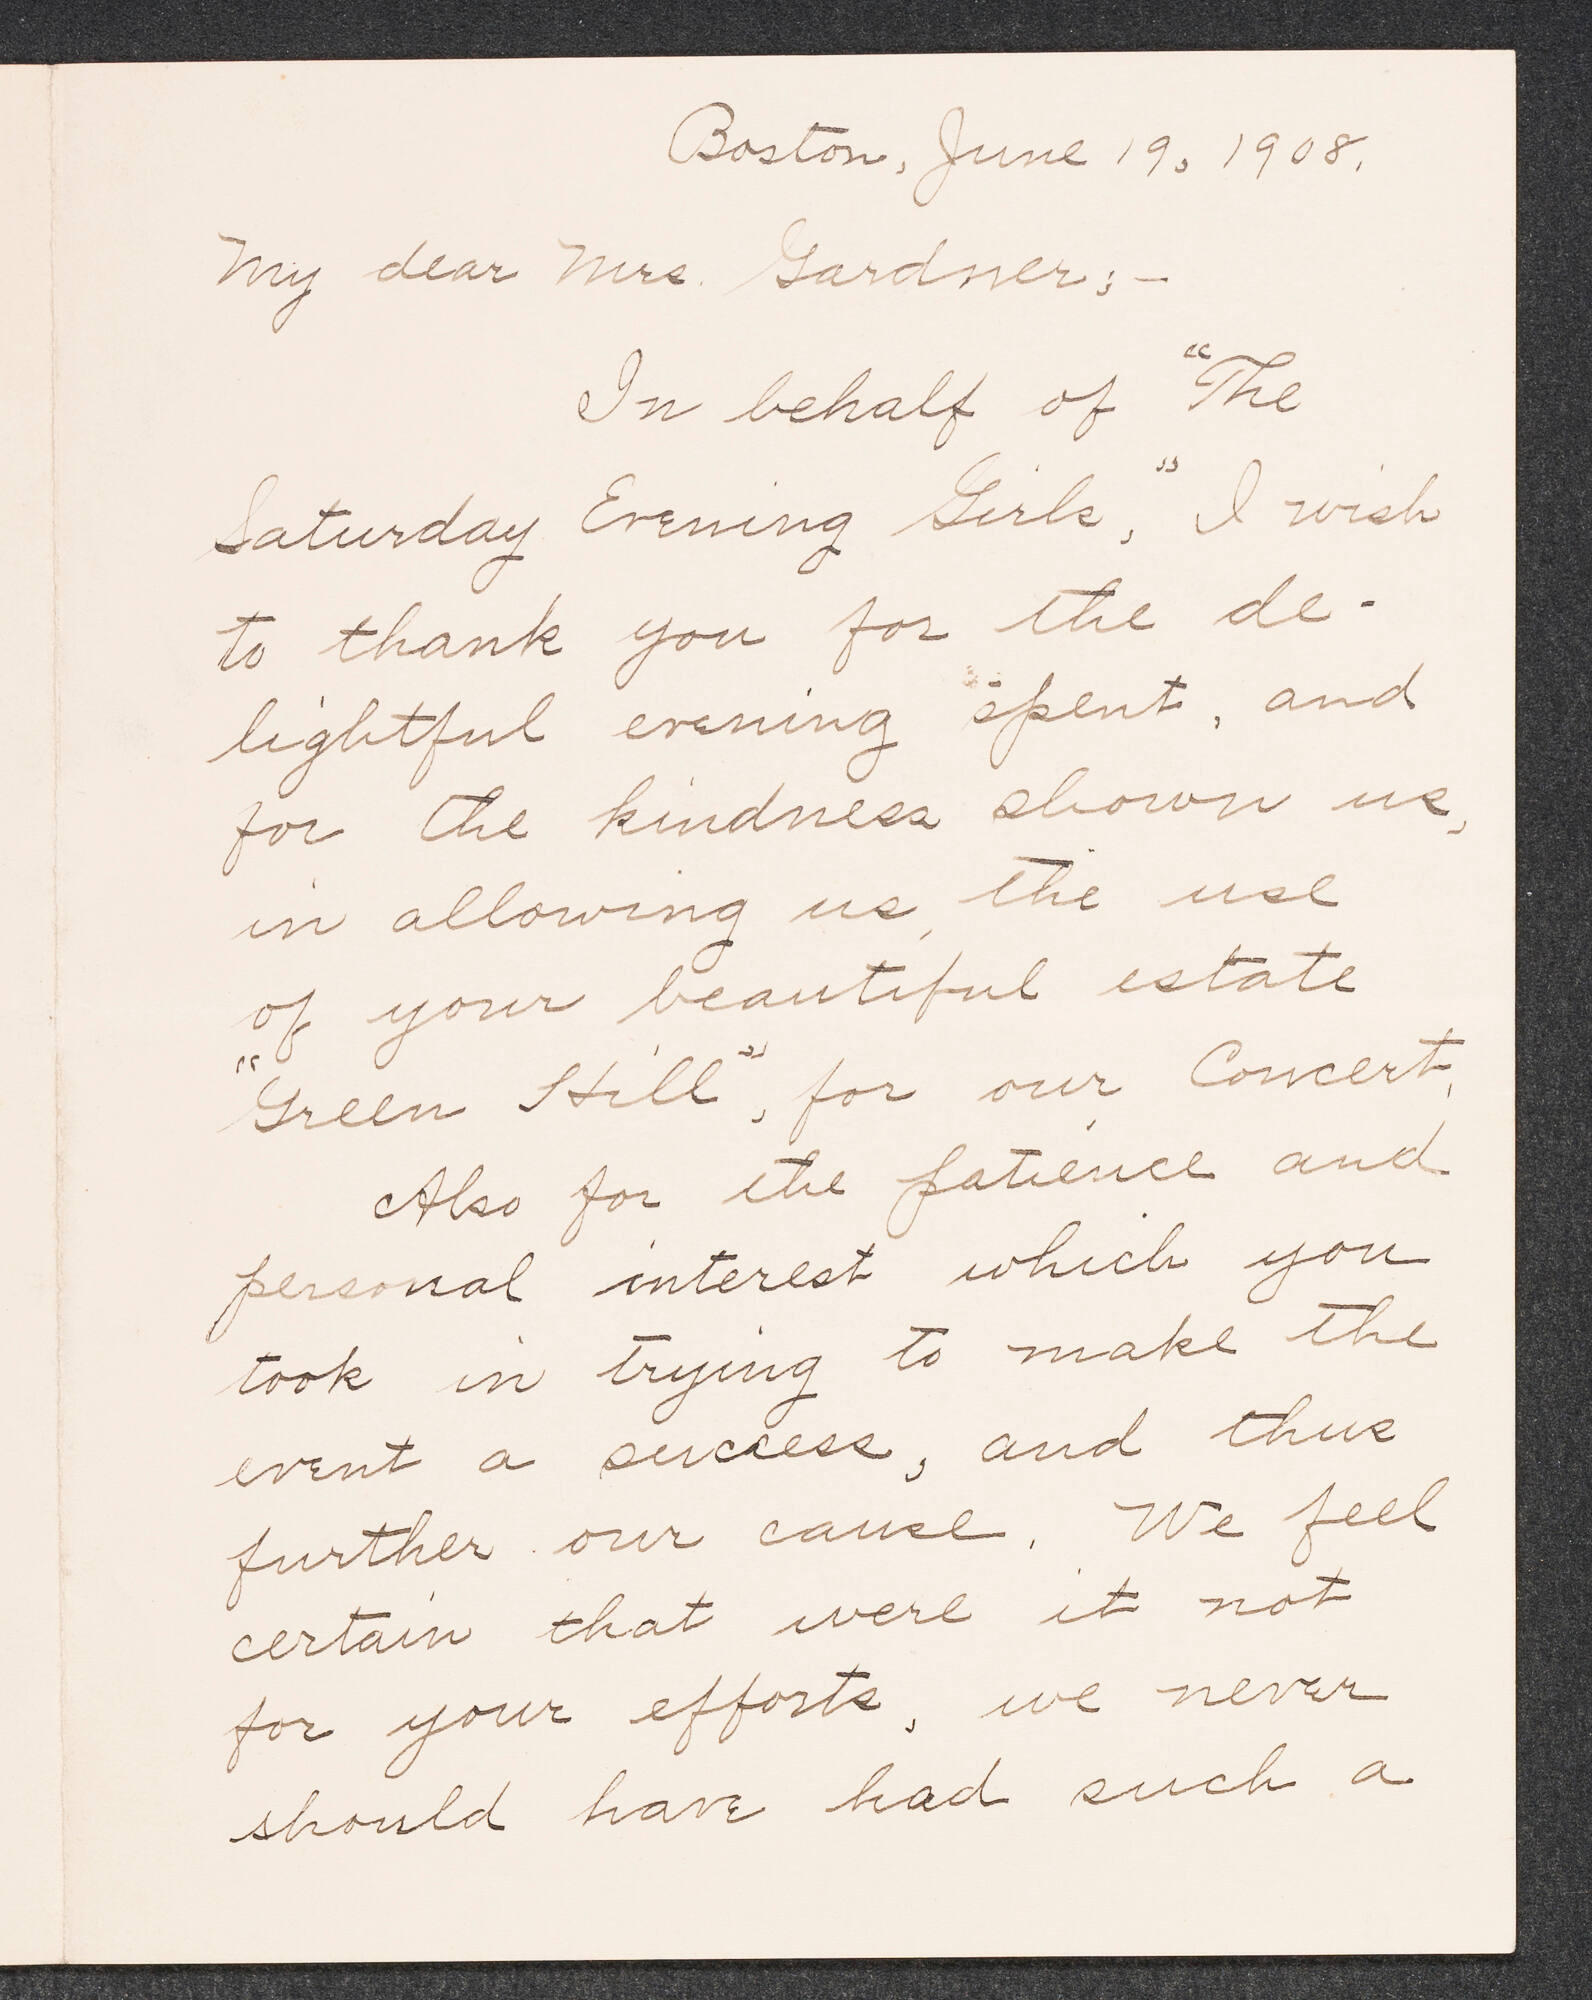 Boston, June 19, 1908.
My dear Mrs. Gardner;-
In behalf of "The
Saturday Evening Girls," I wish
to thank you for the de-
lightful evening spent, and
for the kindness shown us,
in allowing us, the use
of your beautiful estate
"Green Hill", for our Concert.
Also for the patience and
personal interest which you
took in trying to make the
event a success, and thus
further our cause. We feel
certain that were it not
for your efforts, we never
should have had such a